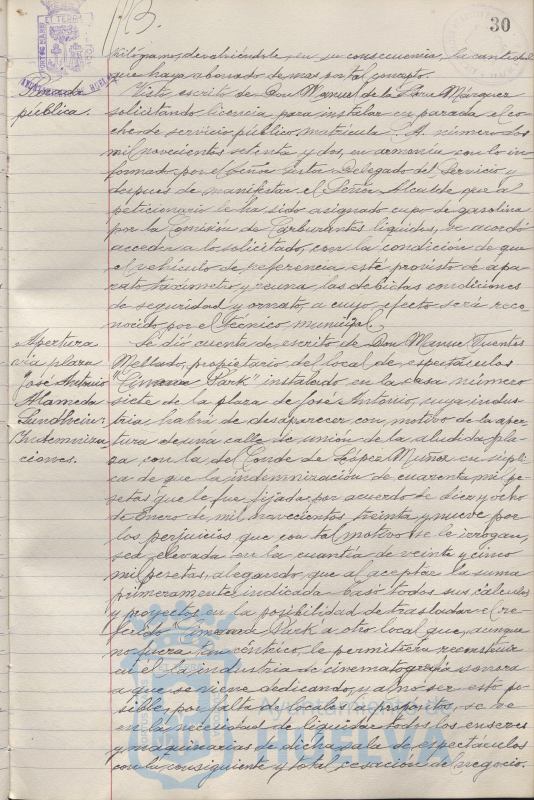 30
kilógramo, devolviéndole, en su consecuencia, la cantidad
que haya abonado de mas por tal concepto.
Parada
pública.
Visto escrito de Don Manuel de la Torre Márquez
solicitando licencia para instalar en parada el co-
che de servicio público matrícula A. número dos
mil novecientos setenta y dos, en armonía con lo in-
formado por el Señor Delegado del Servicio y
despues de manifestar el Señor Alcalde que al
peticionario le ha sido asignado cupo de gasolina
por la Comisión de Carburantes líquidos, se acordó
acceder a lo solicitado, con la condición de que
el vehículo de referencia esté provisto de apa-
rato taxímetro y reuna las debidas condiciones
de seguridad y ornato, a cuyo efecto será reco-
nocido por el Técnico municipal.
Apertura
vía plaza
José Antonio
Alameda
Sundheim:
Indemniza
ciones.
Se dió cuenta de escrito de Don Manuel Fuentes
Mellado, propietario del local de espectáculos
"Cinema Park" instalado en la casa número
siete de la plaza de José Antonio, cuya indus-
tria habrá de desaparecer con motivo de la aper-
tura de una calle de unión de la aludida pla-
za con la del Conde de López Muñoz en súplica
de que la indemnización de cuarenta mil pe-
setas que le fue fijada por acuerdo de diez y ocho
de Enero de mil novecientos treinta y nueve por
los perjuicios que con tal motivo se le irrogan,
sea elevada en la cuantía de veinte y cinco
mil pesetas, alegando, que al aceptar la suma
primeramente indicada basó todos sus cálculos
y proyectos en la posibilidad de trasladar el re-
ferido "Cinema Park" a otro local que, aunque
no fuera tan céntrico, le permitiera reconstruir
en él la industria de cinematografía sonora
a que se viene dedicando, y al no ser esto po-
sible, por falta de locales a propósito, se ve
en la necesidad de liquidar todos los enseres
y maquinarias de dicha sala de espectáculos
con la consiguiente y total cesación del negocio.
Ayuntamiento de
HUELVA